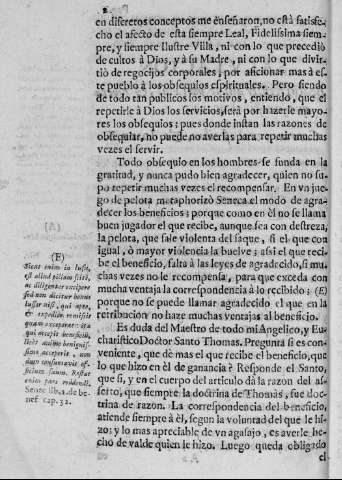 2
en discretos conceptos me enseñaron, no está satisfe-
cho el afecto de esta siempre Leal, Fidelissima siem-
pre, y siempre Ilustre Villa, ni con lo que precediò
de cultos à Dios, y à su Madre, ni con lo que divir-
tiò de regocijos corporales, por aficionar mas à es-
te pueblo à los obsequios espirituales. Pero siendo
de todo tan publicos los motivos, entiendo, que el
repetirle à Dios los servicios, serà por hazerle mayo-
res los obsequios; pues donde instan las razones de
obsequiar, no puede no averlas para repetir muchas
vezes el servir.
Todo obsequio en los hombres se funda en la
gratitud, y nunca pudo bien agradecer, quien no su-
po repetir muchas vezes el recompensar. En vn jue-
go de pelota metaphorizò Seneca el modo de agra-
decer los beneficios; porque como en èl no se llama
buen jugador el que recibe, aunque sea con destreza,
la pelota, que sale violenta del saque, si el que con
igual, ò mayor violencia la buelve; assi el que reci-
be el beneficio, falta à las leyes de agradecido, si mu-
chas vezes no le recompensa, para que exceda con
mucha ventaja la correspondencia à lo recibido; (E)
porque no se puede llamar agradecido el que en la
retribucion no haze muchas ventajas al beneficio.
(E)
Sicut enim in lusu,
est aliud pillam scitè,
ac diligenter excipere
sed non dicitur bonus
lussor nisi, qui aptè,
&c expedite remissit
quam exceperat: ita
qui accepit beneficiũ,
licèt animo benignis-
simo acceperit, non
dum consummavit of-
ficium suum. Restat
enim para reddendi.
Senec. lib. 2. de be-
nef. cap. 32.
Es duda del Maestro de todo mi Angelico, y Eu-
charistico Doctor Santo Thomas. Pregunta si es con-
veniente, que dè mas el que recibe el beneficio, que
lo que hizo en èl de ganancia? Responde el Santo,
que si, y en el cuerpo del articulo dà la razon del as-
serto, que siempre la doctrina de Thomas, fue doc-
trina de razon. La correspondencia del beneficio,
atiende siempre à èl, segun la voluntad del que le hi-
zo: y lo mas apreciable de vn agasajo, es averle he-
cho de valde quien le hizo. Luego queda obligado
el